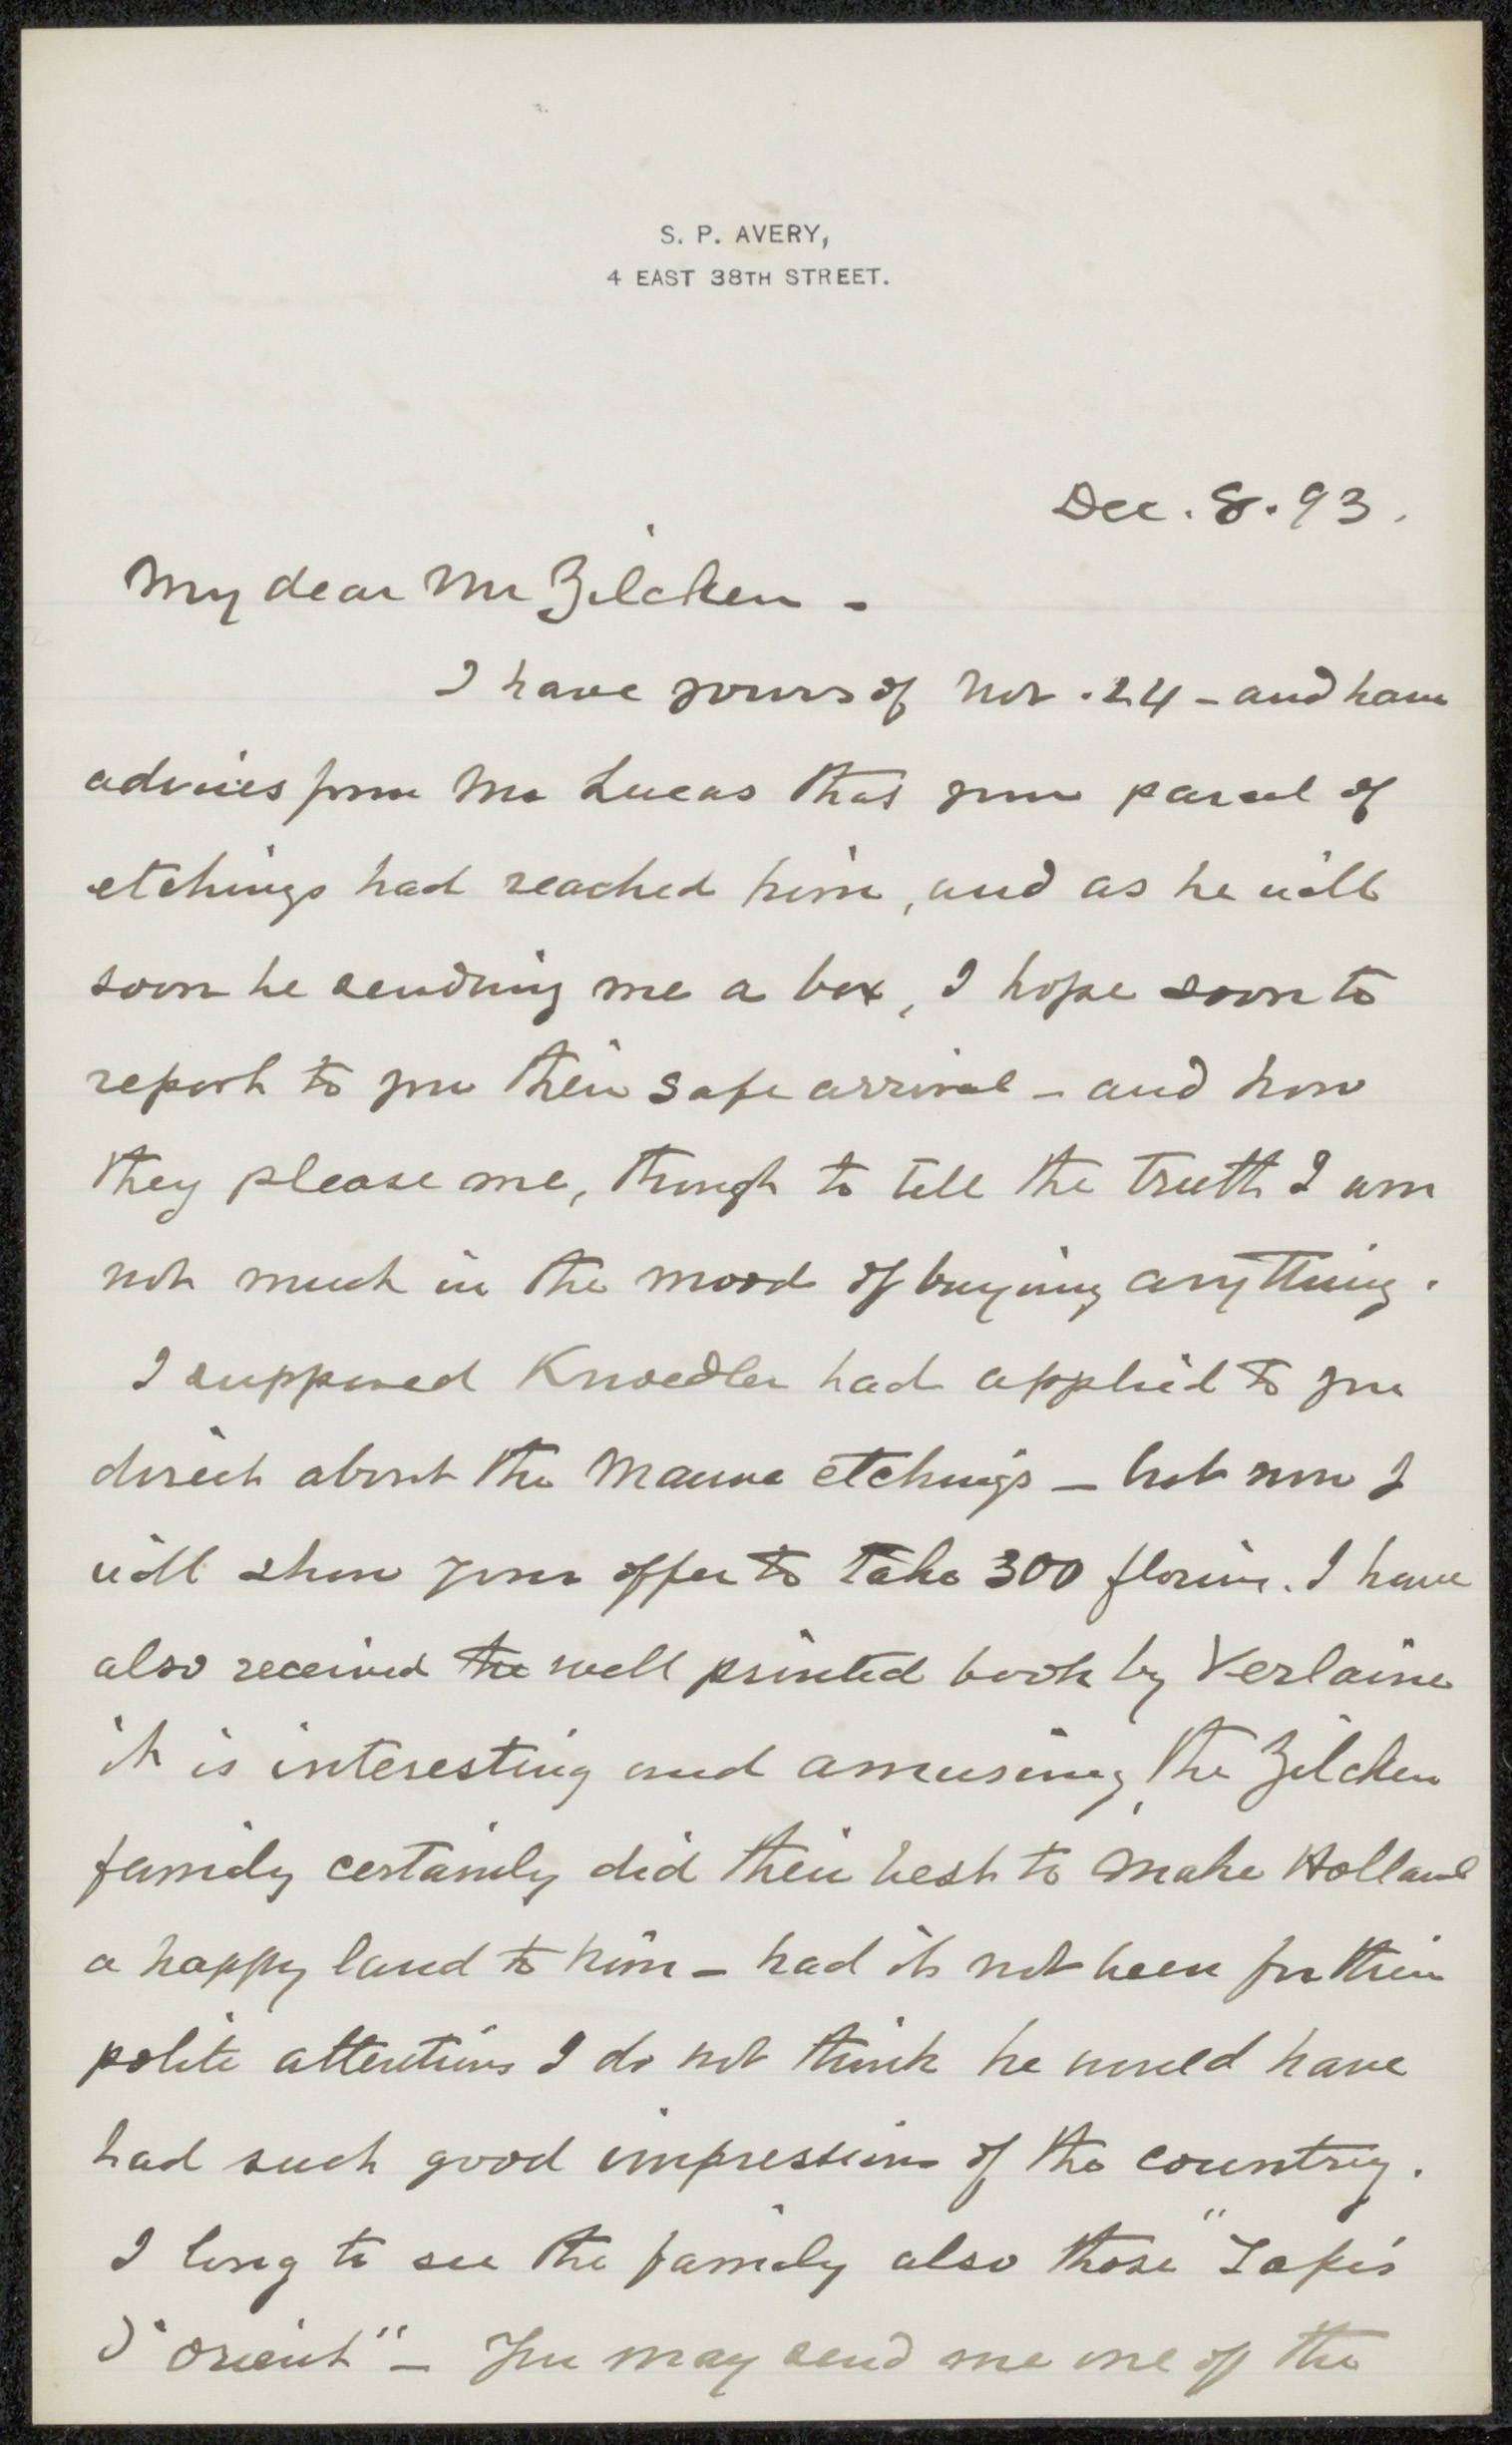 S. P. AVERY,
4 EAST 38TH STREET.
Dec. 8. 93.
My dear Mr Zilcken -
I have yours of Nov. 24 - and have
advices from Mr Lucas that your parcel of
etchings had reached him, and as he will
soon be sending me a box, I hope soon to
report to you their safe arrival - and how
they please me, though to tell the truth I am
not much in the mood of buying anything.
I supposed Knoedler had applied to you
direct about the Mauve etchings - but now I
will show your offer to take 300 florins. I have
also received the well printed book by Verlaine
it is interesting and amusing, the Zilcken
family certainly did their best to make Holland
a happy land to him - had it not been for their
polite attentions I do not think he would have
had such good impressions of the country.
I long to see the family also those "Tapis
d'orient" - You may send me one of the